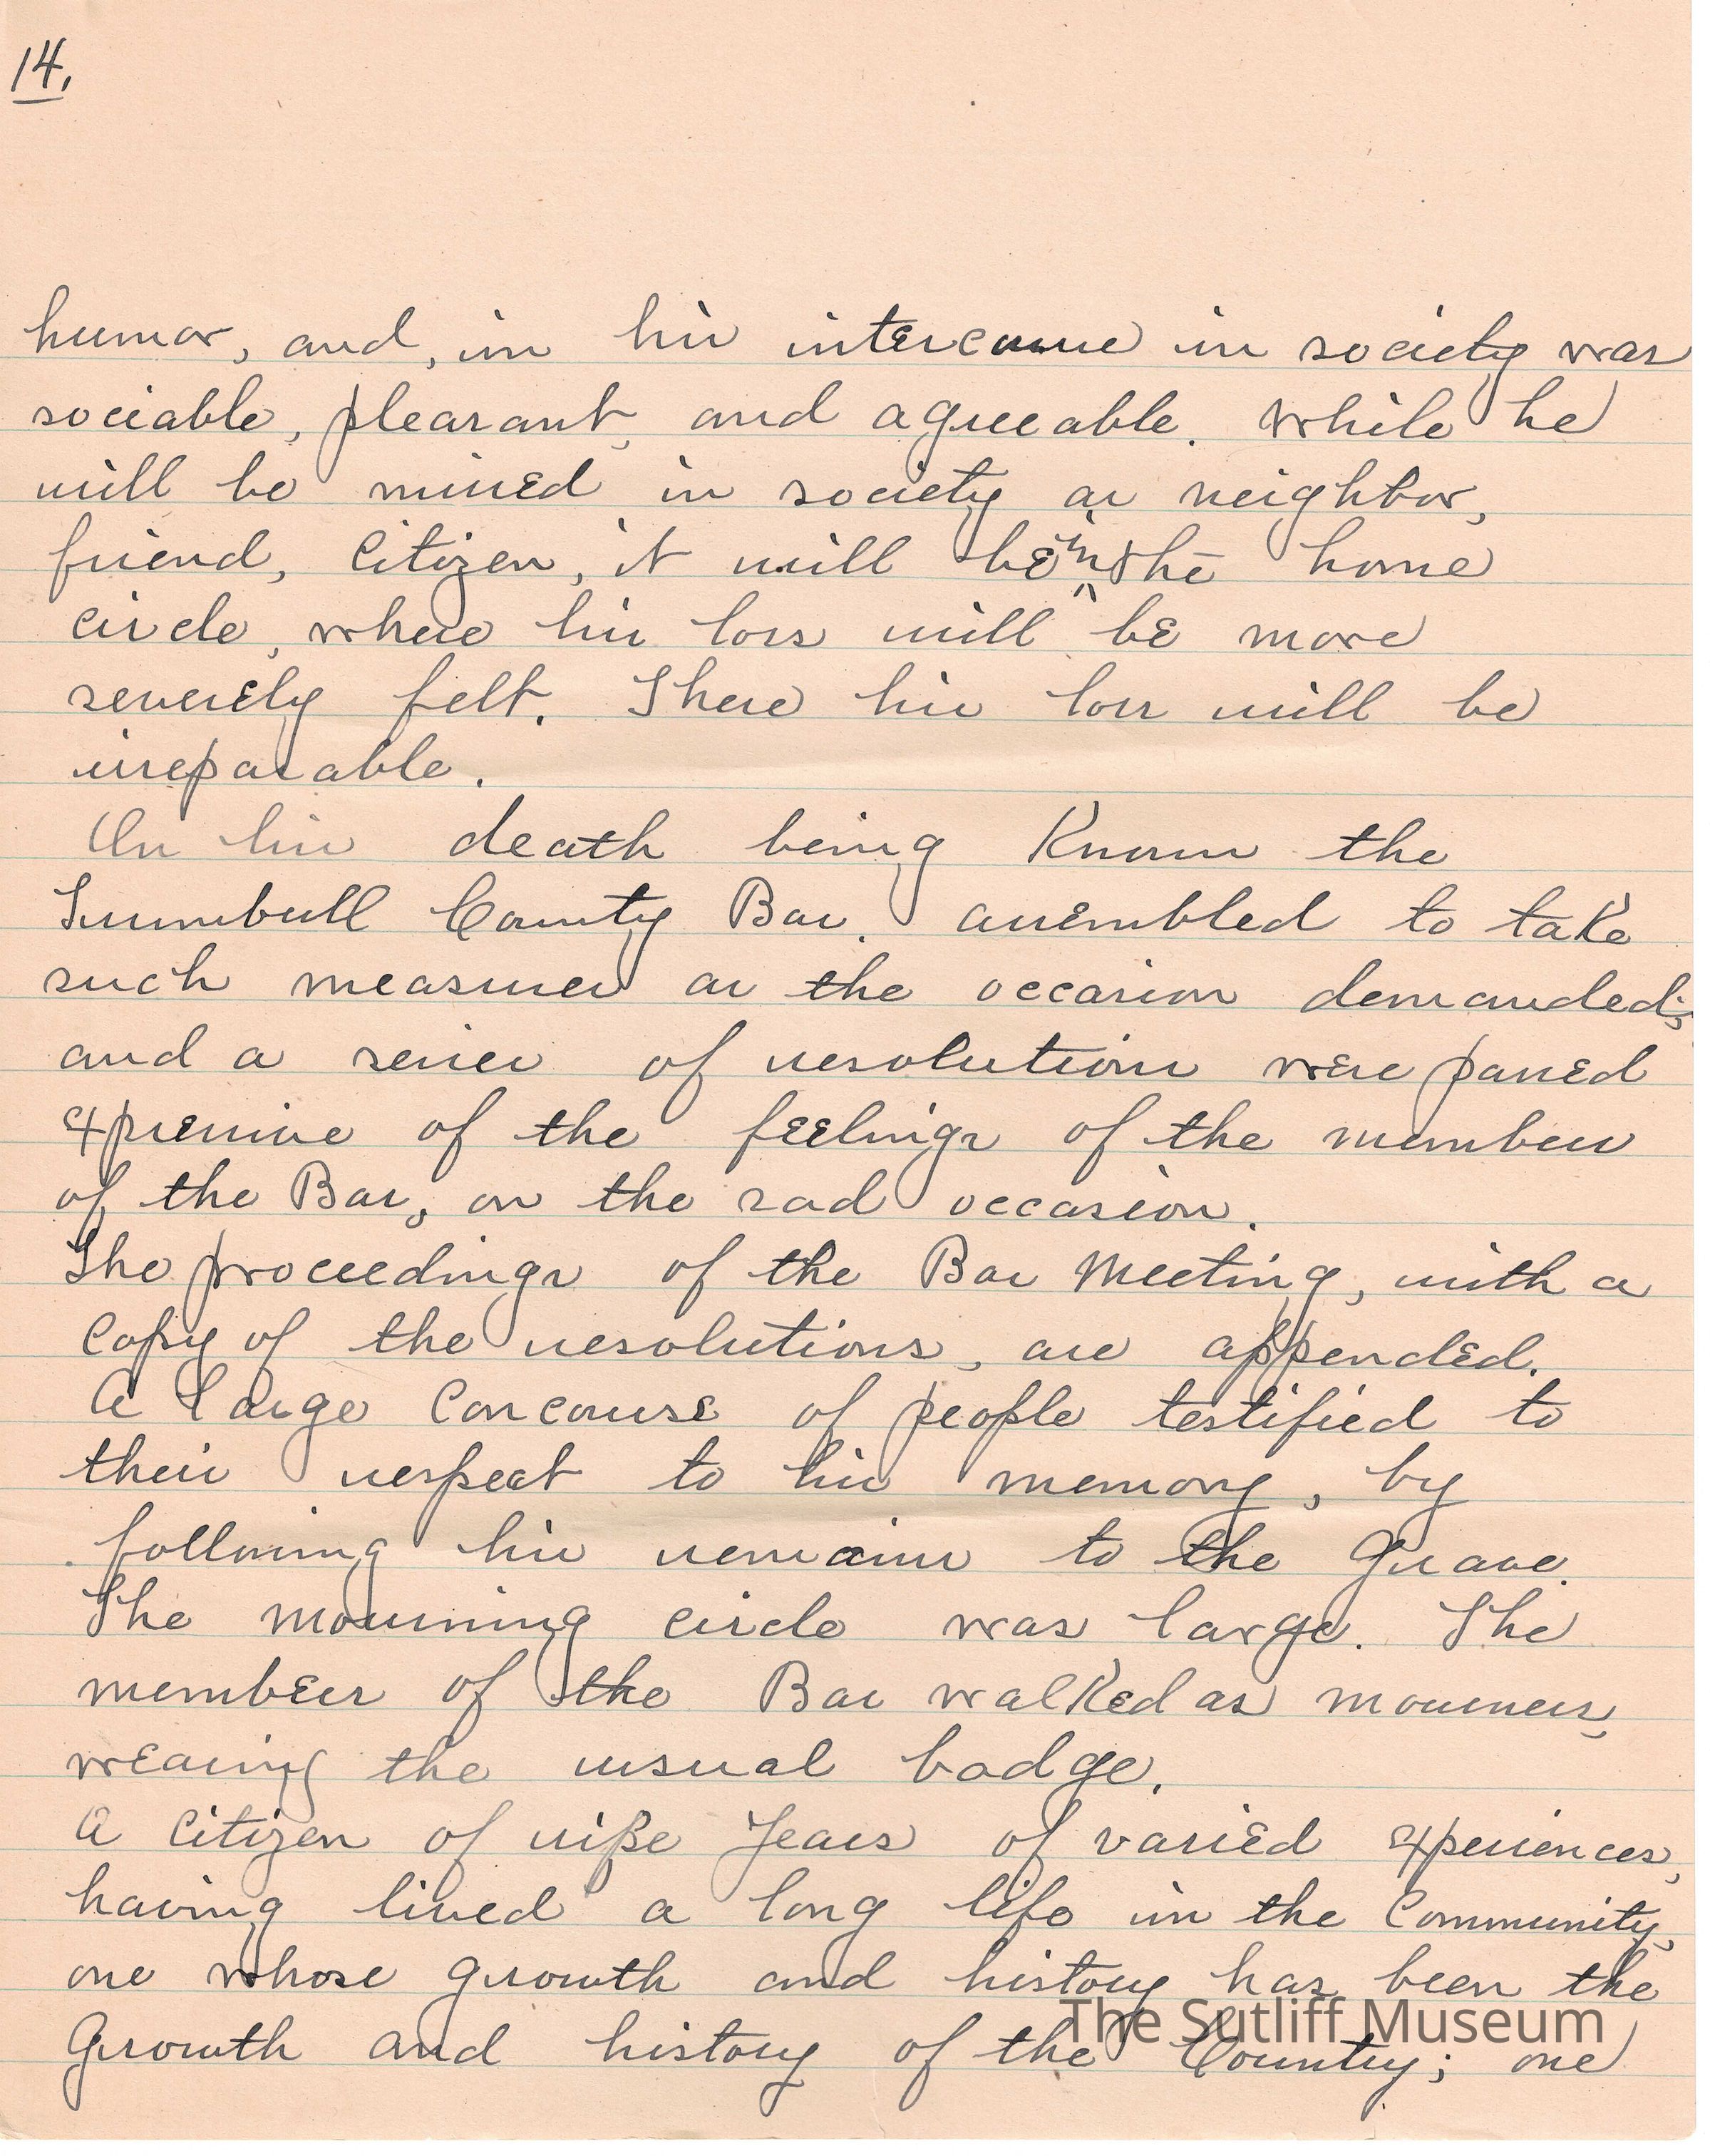 14.
humor, and, in his intercourse in society was
sociable, pleasant, and agreeable. While he
will be missed in society as neighbor,
friend, Citizen, it will be in the home
circle, where his loss will be more
severely felt. There his loss will be
irreparable.
On his death being Known the
Trumbull County Bar. assembled to take
such measures as the occasion demanded;
and a series of resolutions were passed
expressive of the feelings of the members
of the Bar, on the sad occasion.
The proceedings of the Bar Meeting, with a
Copy of the resolutions, are appended.
A large Concourse of people testified to
their respect to his memory, by
following his remains to the Grave.
The Mourning circle was large. The
members of the Bar walked as mourners,
wearing the usual badge.
A Citizen of ripe Years of varied experiences,
having lived a long life in the Community,
one whose growth and history has been the
Growth and history of the Country; one
The Sutliff Museum